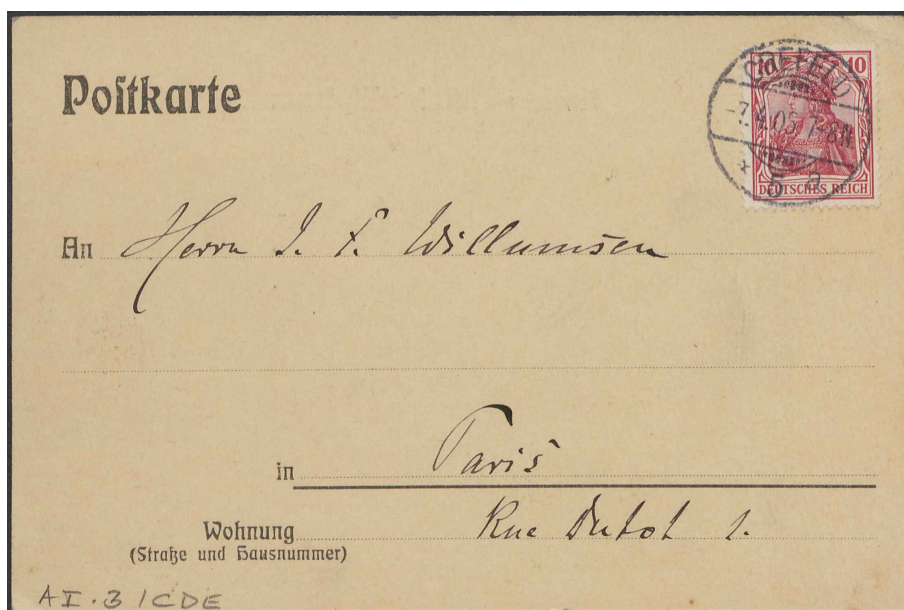 Postkarte
10 10
DEUTSCHES REICH
CREFELD
7.4.05 7-8N.
* 5 a
An Herrn J. F. Willumsen
in Paris
Wohnung Rue Dutot 1.
(Straße und Hausnummer)
AI.3 / CDE